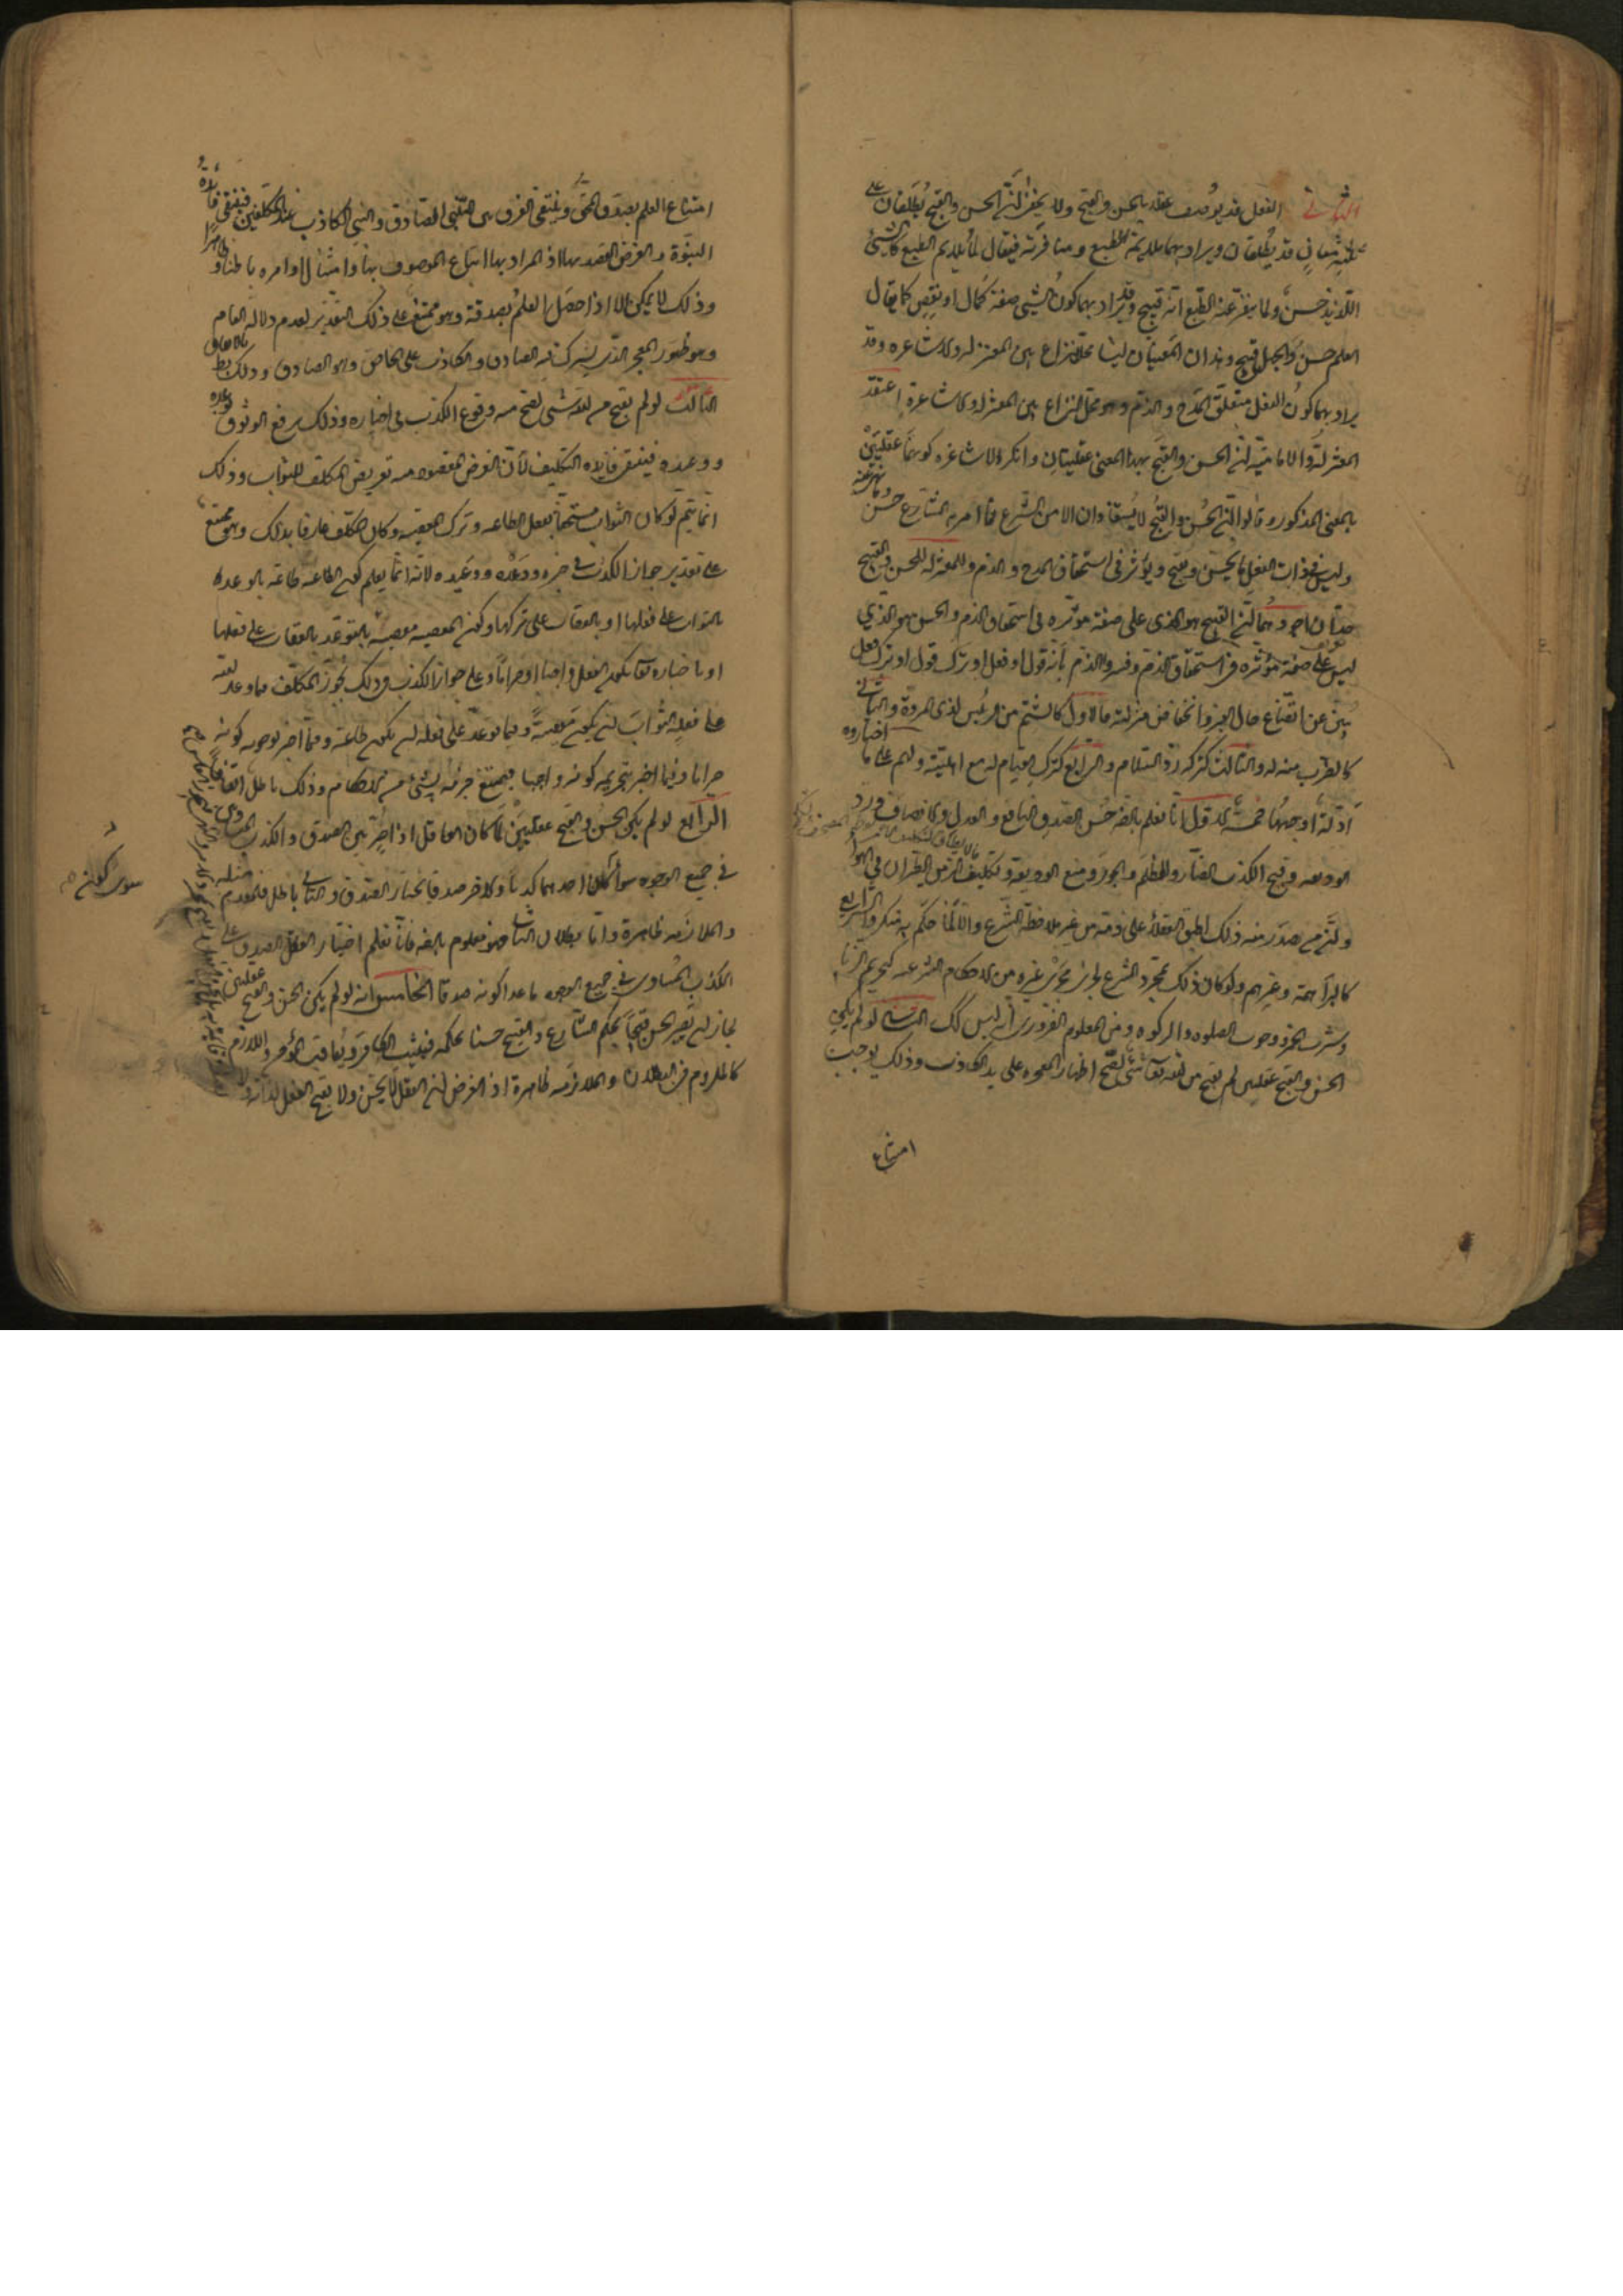 الفعل قد يوصف عقلا بالحسن والقبح ولا يخفى ان الحسن والقبح يطلقان على
ثلثة معان قد يطلقان ويراد بهما ملايمة الطبع ومنافرته فيقال لما يلايم الطبع كالشئ
اللذيذ حسن ولما ينفر عنه الطبع انه قبيح وقد يراد بهما كون الشئ صفة كمال او نقص كما يقال
العلم حسن والجهل قبيح وهذان المعنيان ليسا محل نزاع بين المعتزلة والاشاعرة وقد
يراد بهما كون الفعل متعلق المدح والذم وهو محل النزاع بين المعتزلة والاشاعرة اعتقد
المعتزلة والامامية ان الحسن والقبح بهذا المعنى عقليتان وانكر الاشاعرة كونهما عقليين
بالمعنى المذكور وقالوا ان الحسن والقبح لا يستفادان الا من الشرع فما امر به الشارع حسن وما نهى عنه
وليس في ذات الفعل ما يحسن ويقبح ويؤثر في استحقاق المدح والذم وللمعتزلة للحسن والقبح
حدان وهما ان القبيح هو الذي على صفة مؤثرة في استحقاق الذم والحسن هو الذي
ليس على صفة مؤثرة في استحقاق الذم وفسروا الذم بانه قول او فعل او ترك قول او ترك فعل
ينبئ عن اتضاع حال الغير وانخفاض منزلته فالاول كالشتم من الرئيس لذي المروة والثاني
كالضرب منه له والثالث كتركه رد السلام والرابع كترك القيام له مع اهليته ولهم على ما اختاروه
ادلة اوجهها خمسة الاول انا نعلم بالضرورة حسن الصدق النافع والعدل والانصاف ورد
الوديعة وقبح الكذب الضار والظلم والجور ومنع الوديعة وتكليف الزمن الطيران في الهواء
ومن يصدر منه ذلك اطبق العقلاء على ذمه من غير ملاحظة الشرع والا لما حكم به منكروا الشرايع
كالبراهمة وغيرهم ولو كان ذلك بمجرد الشرع لجرى مجرى غيره من الاحكام الشرعية كتحريم الزنا
وشرب الخمر ووجوب الصلوة والزكوة ومن المعلوم الضروري انه ليس كك الثاني لو لم يكن
الحسن والقبح عقليين لم يقبح من الله تعالى شئ فلا يقبح اظهار المعجزة على يد الكاذب وذلك يوجب
امتناع
امتناع العلم بصدق المحق وينتفي الفرق بين النبي الصادق والنبي الكاذب عند المكلفين فينتفي فائدة
النبوة والغرض المقصود بها اذ المراد بها اتباع الموصوف بها وامتثال اوامره باطنا وظاهرا
وذلك لا يمكن الا اذا حصل العلم بصدقه وهو ممتنع على ذلك التقدير لعدم دلالة العام
وهو ظهور المعجز الذي يشترك فيه الصادق والكاذب على الخاص وهو الصادق وذلك بط بالاتفاق
الثالث لو لم يقبح من الله شئ لم يقبح منه وقوع الكذب في اخباره وذلك يرفع الوثوق بوعده
ووعيده فينتفي فايدة التكليف لان الغرض المقصود منه تعريض المكلف للثواب وذلك
انما يتم لو كان الثواب مستحقا بفعل الطاعة وترك المعصية وكان المكلف عارفا بذلك وهو ممتنع
على تقدير جواز الكذب في خبره ووعده ووعيده لانه انما يعلم كون الطاعة طاعة بالوعد
بالثواب على فعلها او بالعقاب على تركها وكون المعصية معصية بالتوعد بالعقاب على فعلها
او باخباره تعالى بكون الفعل واجبا او حراما وعلى جواز الكذب في ذلك يجوز المكلف فيما وعد الله
على فعله الثواب ان يكون معصية وفيما توعد على فعله ان يكون طاعة وفيما اخبر بوجوبه كونه
حراما وفيما اخبر بتحريمه كونه واجبا فيمتنع جزمه بشئ من الاحكام وذلك باطل اتفاقا
الرابع لو لم يكن الحسن والقبح عقليين لما كان العاقل اذا خير بين الصدق والكذب المتساويين
في جميع الوجوه سوى كون احدهما كذبا والاخر صدقا يختار الصدق والثاني باطل فالمقدم مثله
والملازمة ظاهرة واما بطلان الثاني فهو معلوم بالضرورة فانا نعلم اختيار العقلاء الصدق على
الكذب المساوي في جميع الوجوه ما عدا كونه صدقا الخامس انه لو لم يكن الحسن والقبح عقليين
لجاز ان يصير الحسن قبيحا بحكم الشارع والقبيح حسنا بحكمه فيثيب الكافر ويعاقب المؤمن واللازم
كالملزوم في البطلان والملازمة ظاهرة اذ الغرض ان الفعل لا يحسن ولا يقبح الفعل لذاته